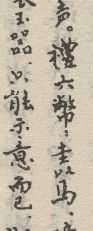 声。禮六幣：圭以馬，
玉器，只能示意而已，